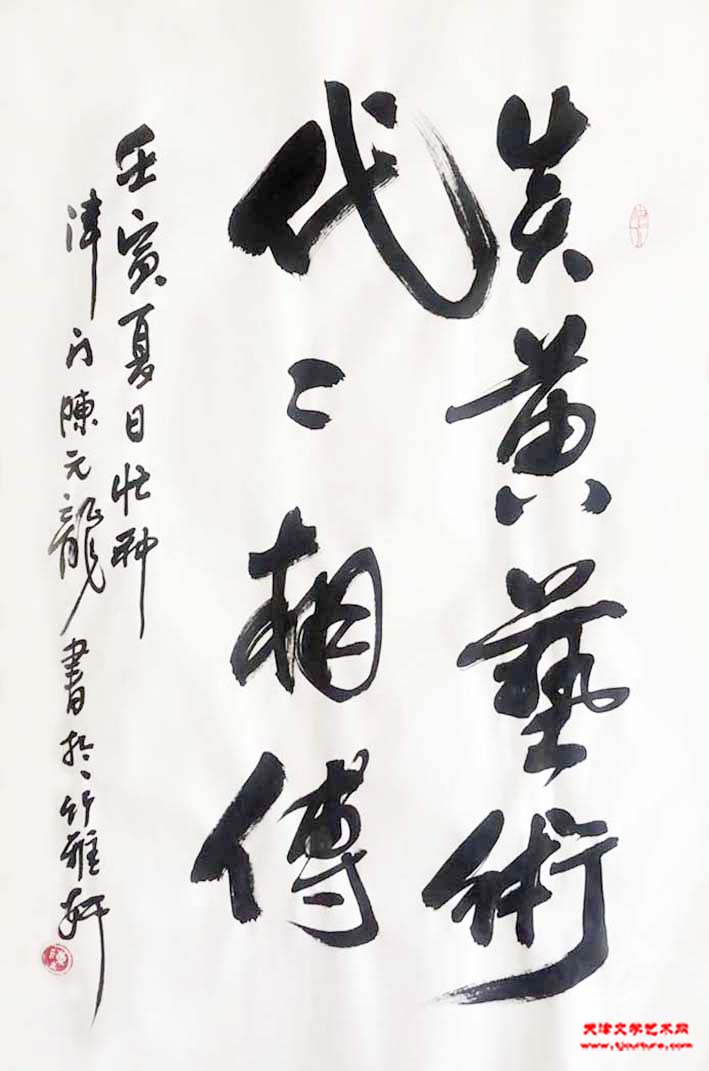 炎黄藝術
代〻相傳
壬寅夏日忙种
津门陳元龍書於竹雅軒
天津文学艺术网
www.tjculture.com